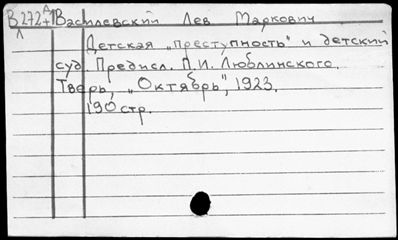 В272 Василевский Лев Маркович
Детская „преступность" и детский
суд. Предисл. П.И. Люблинского.
Тверь, „Октябрь", 1923.
190 стр.